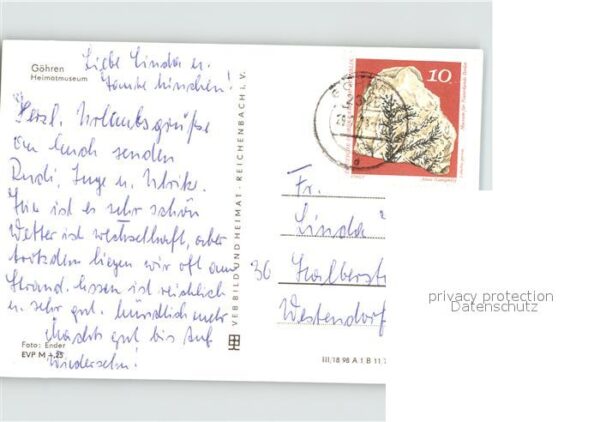 Göhren
Heimatmuseum
Liebe Linda u.
Tante Minchen!
Herzl. Urlaubsgrüße
an Euch senden
Rudi, Inge u. Ulrike.
Hier ist es sehr schön
Wetter ist wechselhaft, aber
trotzdem liegen wir oft am
Strand. Essen ist reichlich
u. sehr gut. Mündlich mehr
Machts gut bis auf
Wiedersehn!
Foto: Ender
EVP M +,25
VEB BILD UND HEIMAT · REICHENBACH I. V.
10
Fr.
Linda
36 Halberst
Westendorf
III/18 98 A 1 B 11/
privacy protection
Datenschutz